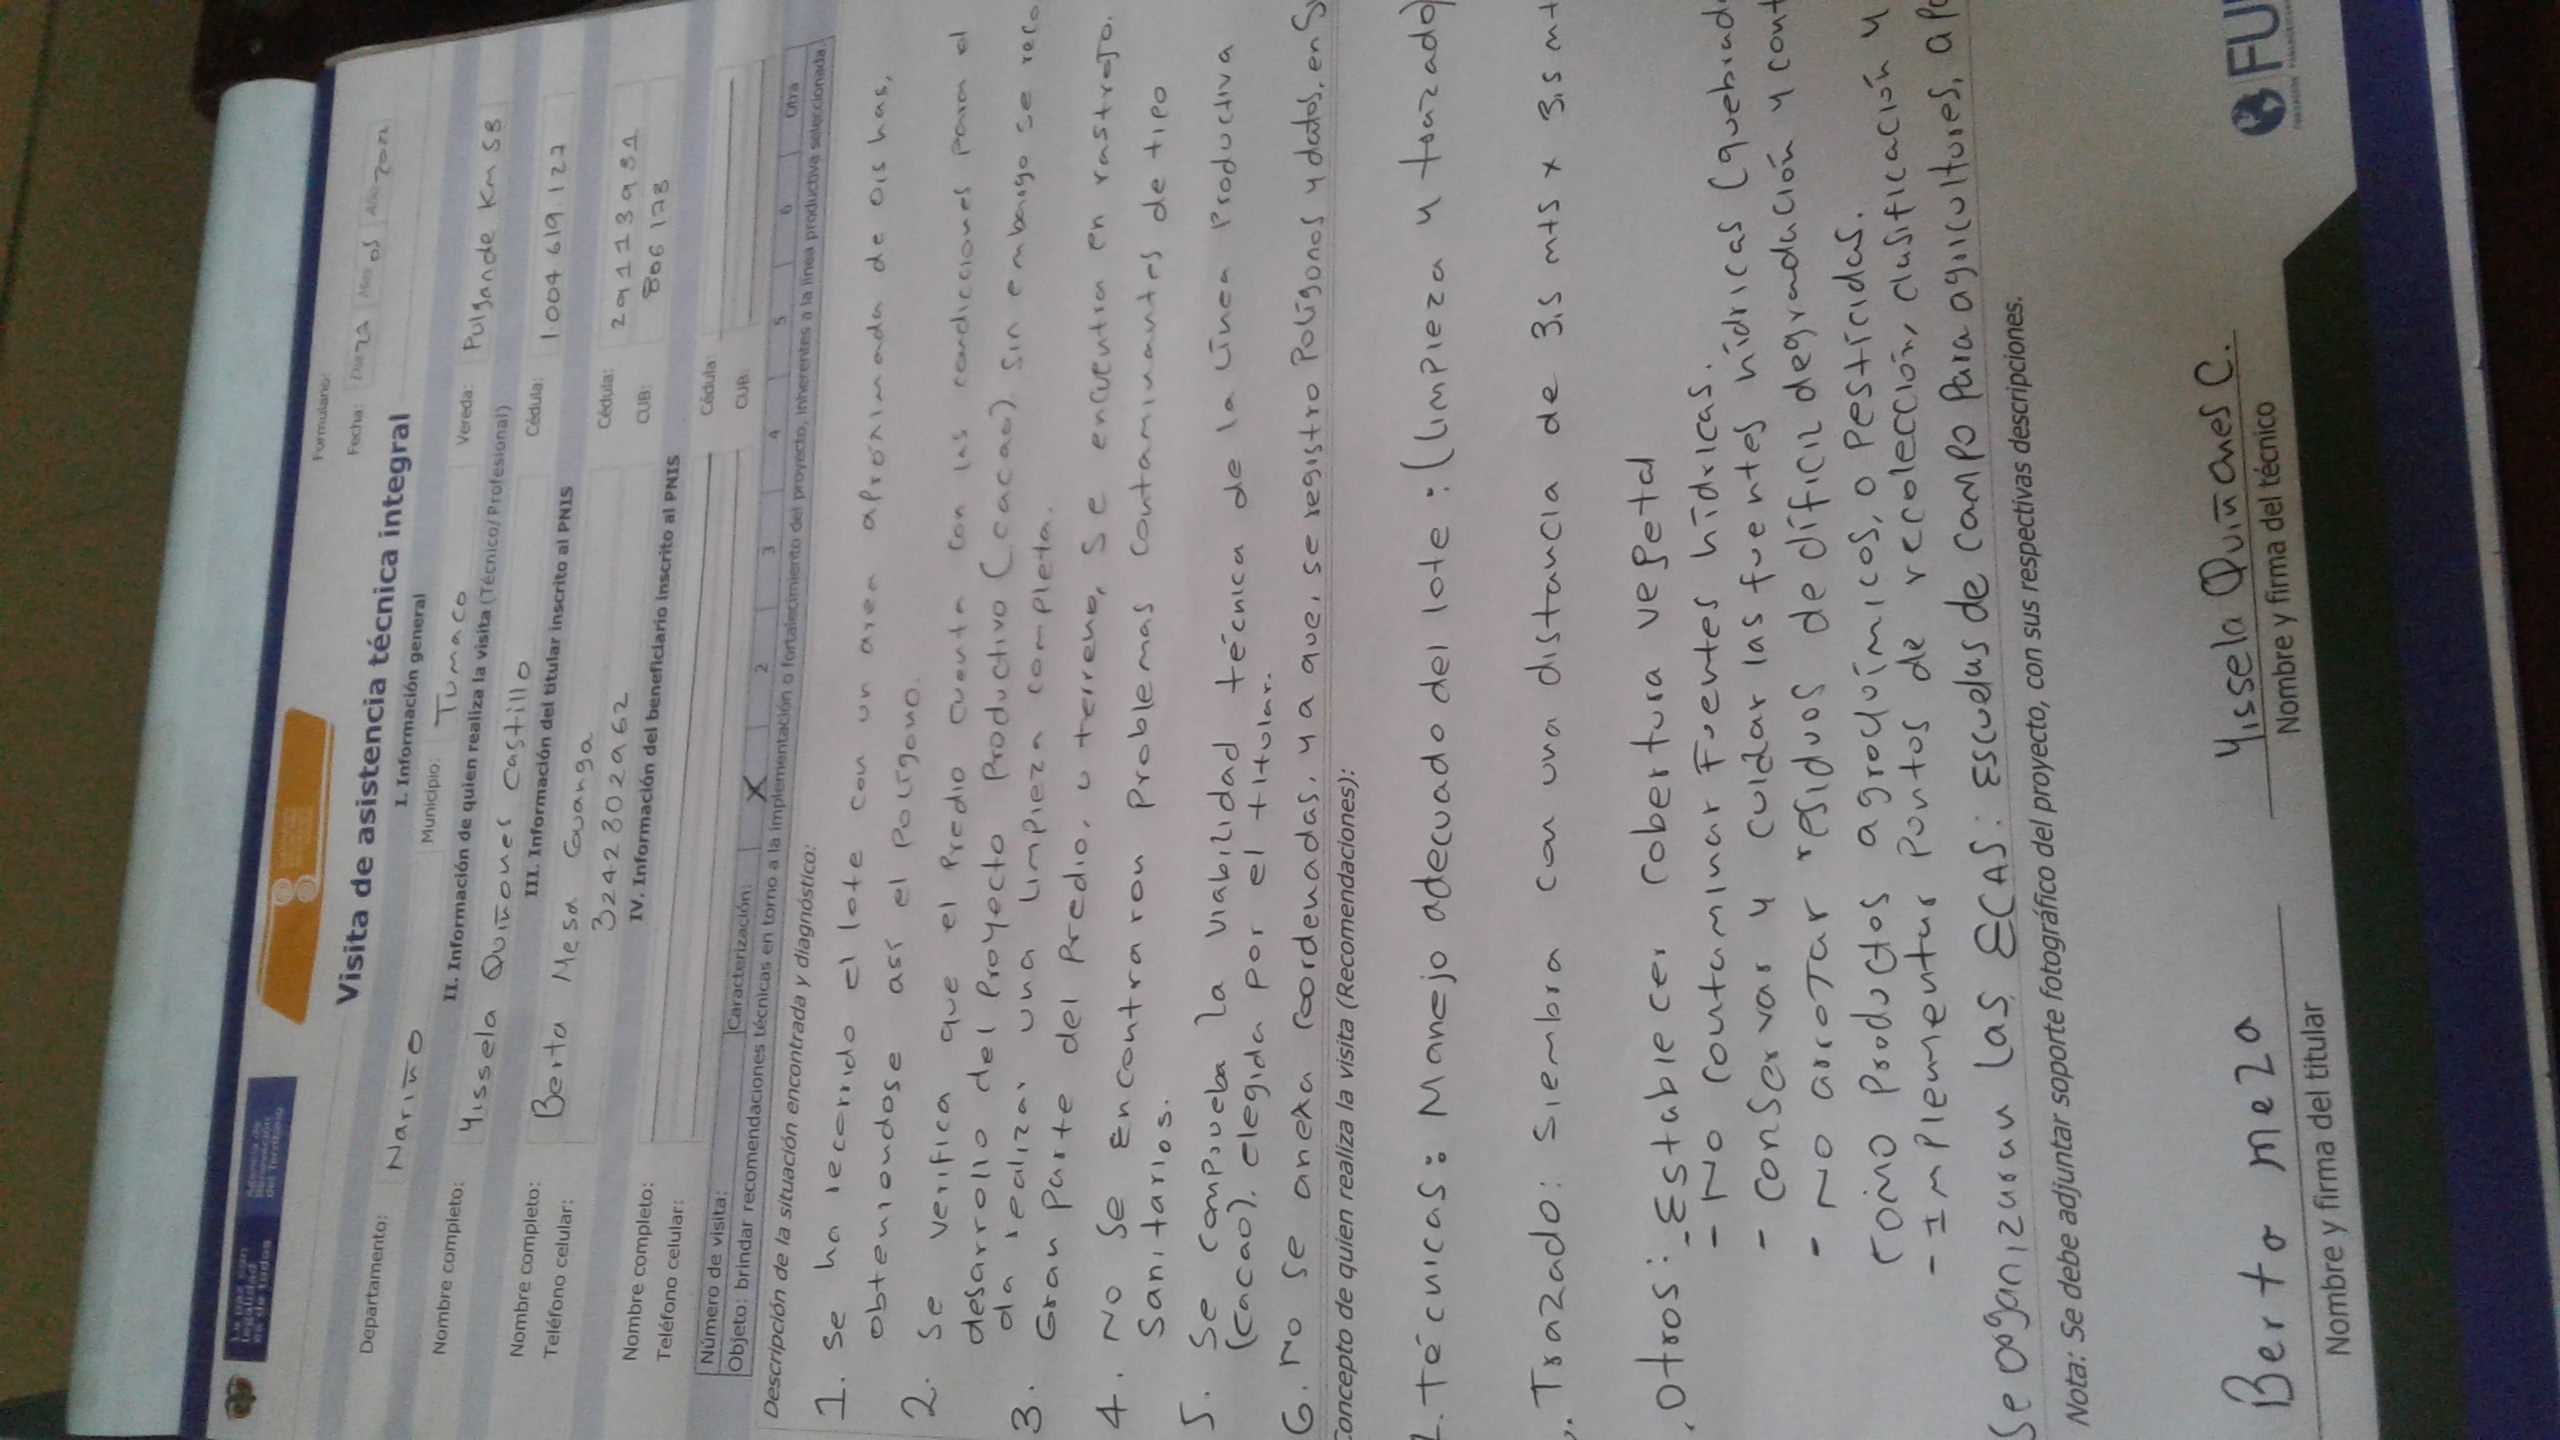 Formulario:
Fecha: Día 27 Mes 05 Año 2022
Visita de asistencia técnica integral
I. Información general
Departamento: Nariño Municipio: Tumaco Vereda: Pulgande Km 58
II. Información de quien realiza la visita (Técnico/Profesional)
Nombre completo: Yissela Quiñones Castillo Cédula: 1.004 619.127
III. Información del titular inscrito al PNIS
Nombre completo: Berta Mesa Guanga Cédula:
Teléfono celular: 3242302962 CUB: 806178
IV. Información del beneficiario inscrito al PNIS
Nombre completo: Cédula:
Teléfono celular: CUB:
Número de visita: Caracterización: X 2 3 4 5 6 Otra
Objeto: brindar recomendaciones técnicas en torno a la implementación o fortalecimiento del proyecto, inherentes a la línea productiva seleccionada.
Descripción de la situación encontrada y diagnóstico:
1. Se ha recorrido el lote con un area aproximada de 01s has,
obteniondose asi el Polígono.
2. Se verifica que el Predio cuenta con las condiciones para el
desarrollo del Proyecto Productivo (cacao). Sin embargo se reco
3. da realizar una limpieza completa.
Gran Parte del Predio, o terreno, se encuentra en rastrojo.
4. No se Encontraron Problemas contaminantes de tipo
Sanitarios.
5. Se comprueba la viabilidad técnica de la línea Productiva
(cacao). elegida por el titular.
6. No se anexa coordenadas, ya que, se registro Polígonos y datos, en
Concepto de quien realiza la visita (Recomendaciones):
técnicas: Manejo adecuado del lote: (limpieza y trazado)
Trazado: Siembra con una distancia de 3.5 mts x 3.5 mt
Otros: - Establecer cobertura vegetal
- No contaminar Fuentes hídricas.
- conservar y cuidar las fuentes hídricas (quebrad
- No arrojar residuos de difícil degradación y cont
como Productos agroquímicos, o Pesticidas.
- Implementar Puntos de recolección, clasificación y
Se organizaran las ECAS: Escuelas de Campo Para agricultores, a Po
Nota: Se debe adjuntar soporte fotográfico del proyecto, con sus respectivas descripciones.
Berta meza Yissela Quiñones C.
Nombre y firma del titular Nombre y firma del técnico
FU